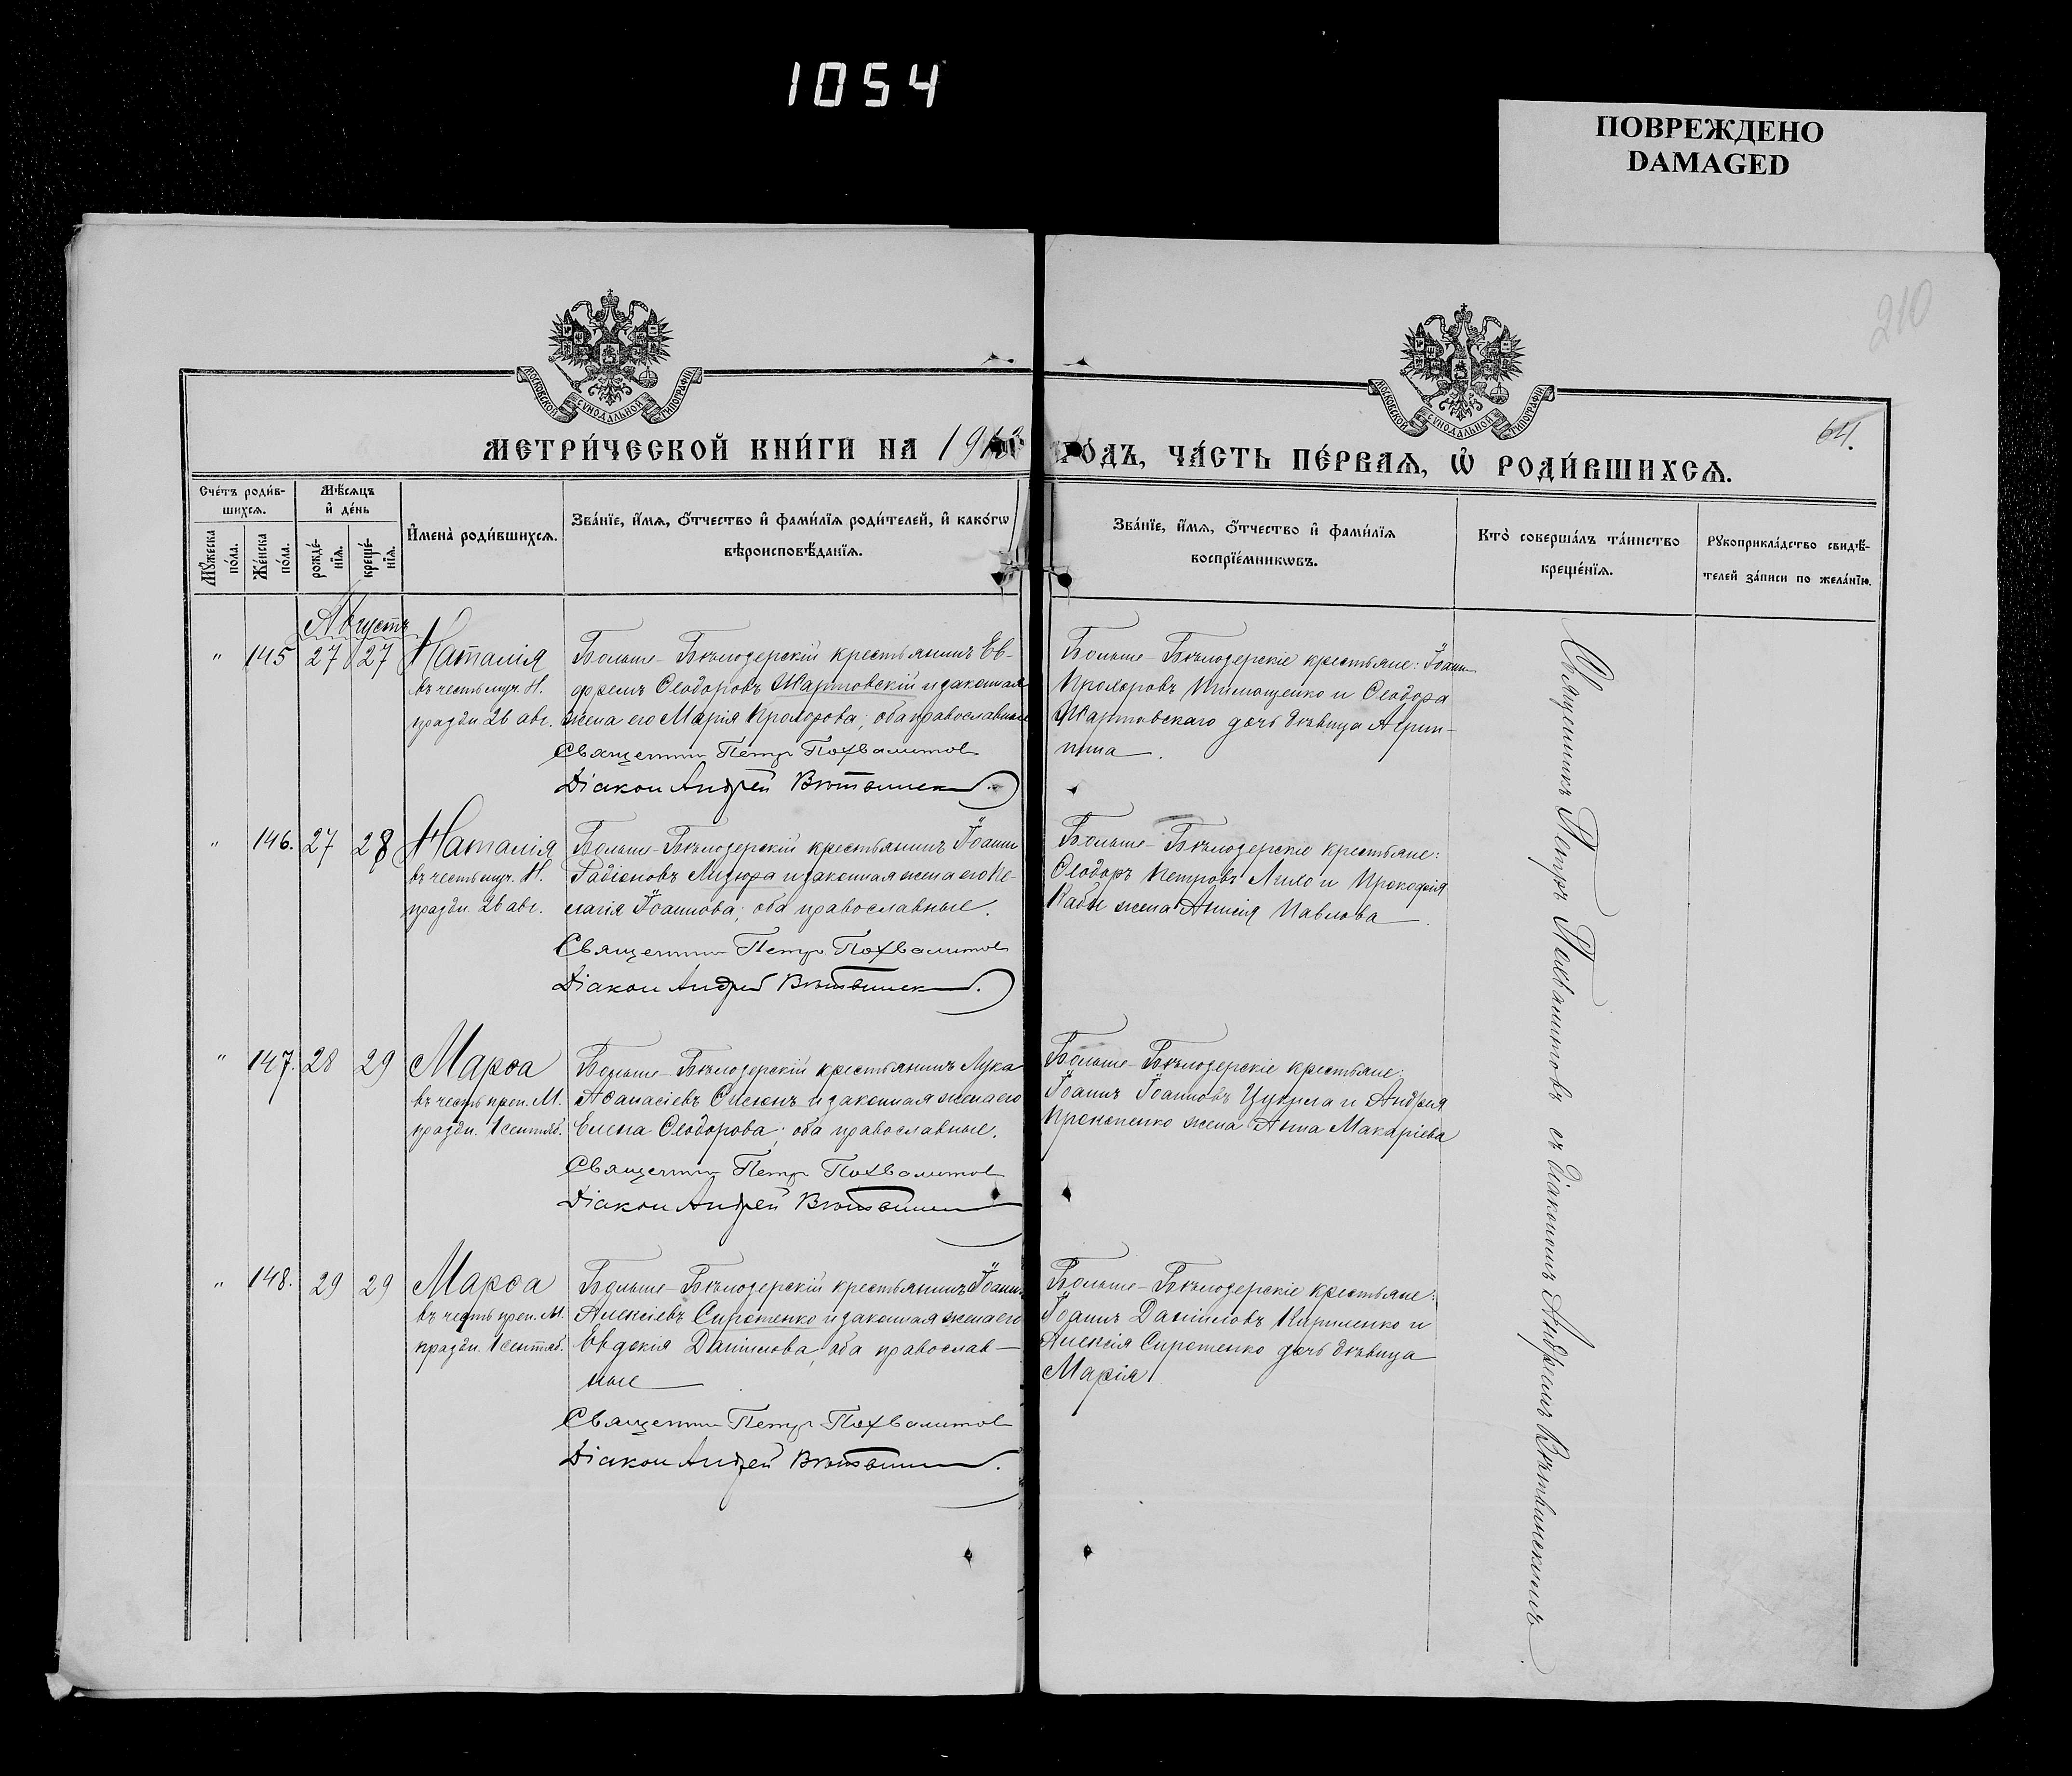 1054
ПОВРЕЖДЕНО
DAMAGED
210
МОСКОВСКОЙ СѴНОДАЛЬНОЙ ТИПОГРАФІИ
МОСКОВСКОЙ СѴНОДАЛЬНОЙ ТИПОГРАФІИ
64.
МЕТРИ́ЧЕСКОЙ КНИ́ГИ НА 191
ГО́ДЪ, ЧА́СТЬ ПЕ́РВАѦ, Ѡ РОДИ́ВШИХСѦ.
Сче́тъ роди́в-
шихсѧ.
Мѣ́сѧцъ
и де́нь
Мꙋ́жеска
по́ла.
Же́нска
по́ла.
рожде́-
нїѧ.
креще́-
нїѧ.
Имена̀ роди́вшихсѧ.
Зва́нїе, и́мѧ, о́тчество и фами́лїѧ роди́телей, и како́гѡ
вѣроисповѣ́данїѧ.
Зва́нїе, и́мѧ, о́тчество и фами́лїѧ
воспрїе́мникѡвъ.
Кто̀ соверша́лъ та́инство
креще́нїѧ.
Рꙋкоприкла́дство свидѣ́-
телей за́писи по жела́нїю.
Августъ
" 145 27 27 Наталія
въ честь муч. Н.
праздн. 26 авг.
Больше-Бѣлозерскій крестьянинъ Ев-
фремъ Ѳеодоровъ Жартовскій и законная
жена его Марія Прохорова; оба православные
Священник Петр Похвалитов
Діакон Андрей
Больше-Бѣлозерскіе крестьяне: Іоанн
Прохоровъ Тимощенко и Ѳеодора
Жартовскаго дочь дѣвица Агрип-
пина
" 146. 27 28 Наталія
въ честь муч. Н.
праздн. 26 авг.
Больше-Бѣлозерскій крестьянинъ Іоанн
Радіоновъ и законная жена его Пе-
лагія Іоаннова; оба православные.
Священник Петр Похвалитов
Діакон Андрей
Больше-Бѣлозерскіе крестьяне:
Ѳеодоръ Петровъ и Прокофія
жена Анисія Павлова
" 147. 28 29 Марѳа
въ честь преп. М.
праздн. 1 сентяб.
Больше-Бѣлозерскій крестьянинъ Лука
Аѳанасіевъ и законная жена его
Елена Ѳеодорова; оба православные.
Священник Петр Похвалитов
Діакон Андрей
Больше-Бѣлозерскіе крестьяне:
Іоаннъ Іоанновъ и Андрея
Прокопенко жена Анна Макаріева
" 148. 29 29 Марѳа
въ честь преп. М.
праздн. 1 сентяб.
Больше-Бѣлозерскій крестьянинъ Іоанн
Алексіевъ Сиротенко и законная жена его
Евдокія Даніилова, оба православ-
ные
Священник Петр Похвалитов
Діакон Андрей
Больше-Бѣлозерскіе крестьяне:
Іоаннъ Данииловъ Кириленко и
Алексія Сиротенко дочь дѣвица
Марія
Священникъ Петръ Похвалитовъ съ Діакономъ Андреемъ Вѣтвинскимъ